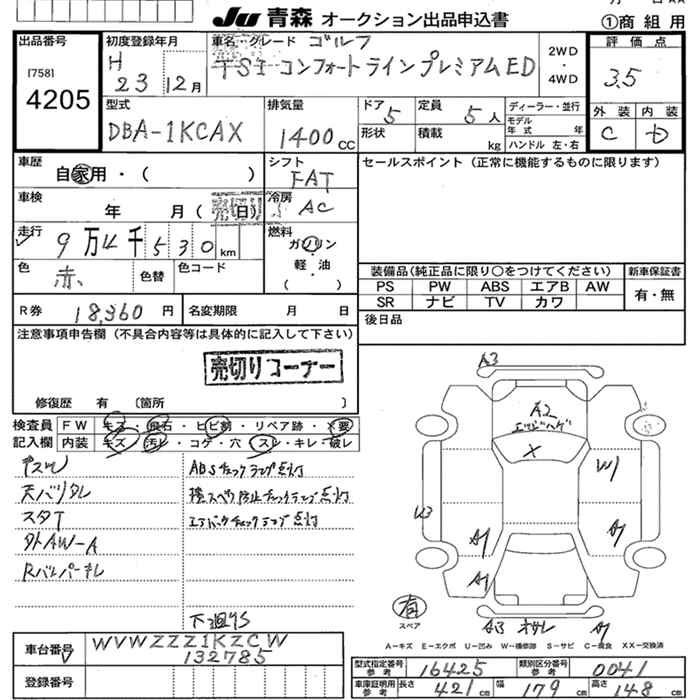 Ju 青森 オークション出品申込書
①商組用
出品番号
[758]
4205
初度登録年月
H 23 12月
車名・グレード ゴルフ
TSI コンフォートラインプレミアムED
2WD
・
4WD
評価点
3.5
外装 内装
C D
型式
DBA-1KCAX
排気量
1400 CC
ドア 5
定員 5人
形状
積載 kg
ディーラー・並行
モデル
年式 年
ハンドル 左・右
車歴
自家用・( )
シフト
FAT
セールスポイント(正常に機能するものに限ります)
車検
年 月( 日)
売切り
冷房
AC
走行
9万4千530km
燃料
ガソリン
軽・油
( )
色
赤
色替
色コード
装備品(純正品に限り○をつけてください)
新車保証書
PS PW ABS エアB AW
SR ナビ TV カワ
有・無
R券 18,360円
名変期限 月 日
後日品
注意事項申告欄(不具合内容等は具体的に記入して下さい)
売切りコーナー
修復歴 有 (箇所 )
検査員
記入欄
FW キズ・飛石・ヒビ割・リペア跡・×要
内装 キズ・汚レ・コゲ・穴・スレ・キレ・破レ
天バリタレ
スタT
外AW-A
Rバンパーキレ
ABSチェックランプ点灯
横スベリ防止チェックランプ点灯
エアバックチェックランプ点灯
下廻りS
A3
A2
X
W1
U3
A1
A1
A1
有
スペア
A3
A1
A-キズ E-エクボ U-凹み W-補修跡 S-サビ C-腐食 XX-交換済
車台番号
WVWZZZ1KZCW
132785
登録番号
型式指定番号
参考
16425
類別区分番号
参考
0041
車庫証明用
参考
長さ 421cm
幅 179cm
高さ 148cm